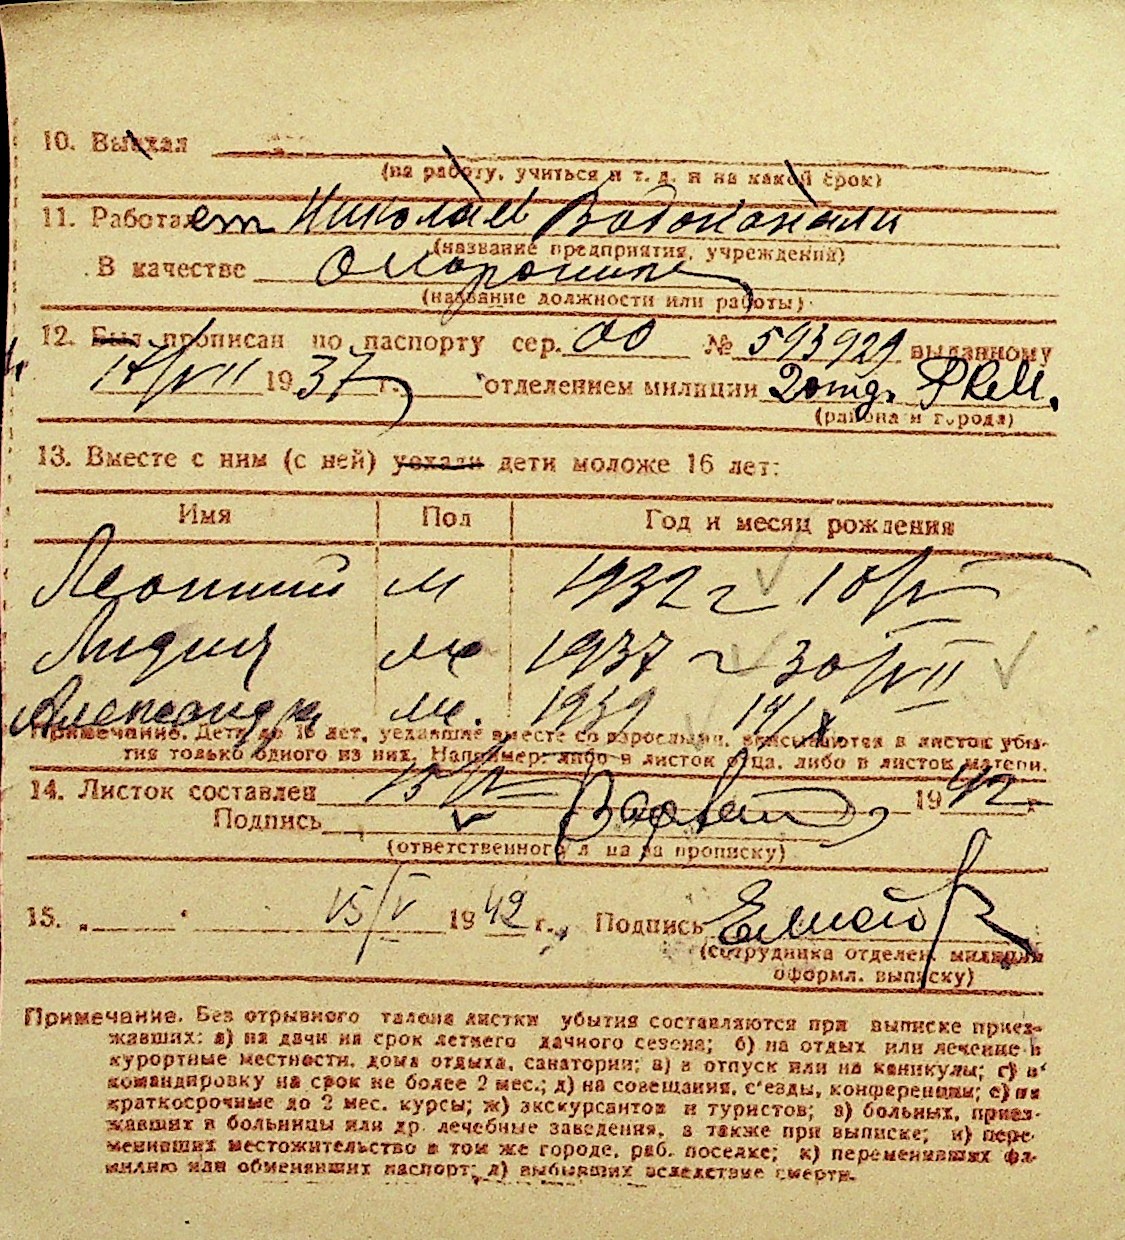 10. Выехал
(на работу, учиться и т. д. и на какой срок)
11. Работает Николаев Водоканали
(название предприятия, учреждения)
В качестве Сторожип
(название должности или работы)
12. Был прописан по паспорту сер. ОО № 593929 выданному
17/VII 1937 г. отделением милиции 2 отд. РКМ.
(района и города)
13. Вместе с ним (с ней) уехали дети моложе 16 лет:
Имя Пол Год и месяц рождения
Леонтий м 1932 г 10/V
Лидия ж 1937 г 30/VII
Александр м. 1939 19/X
Примечание. Дети до 16 лет, уехавшие вместе со взрослыми, вписываются в листок убы-
тия только одного из них. Например: либо в листок отца, либо в листок матери.
14. Листок составлен 15/V 1942 г
Подпись
(ответственного лица за прописку)
15. „ " 15/V 1942 г. Подпись
(сотрудника отделен. милиции
оформл. выписку)
Примечание. Без отрывного талона листки убытия составляются при выписке приез-
жавших: а) на дачи на срок летнего дачного сезона; б) на отдых или лечение в
курортные местности, дома отдыха, санатории; в) в отпуск или на каникулы; г) в
командировку на срок не более 2 мес.; д) на совещания, с'езды, конференции; е) на
краткосрочные до 2 мес. курсы; ж) экскурсантов и туристов; з) больных, приез-
жавших в больницы или др. лечебные заведения, а также при выписке; и) пере-
менивших местожительство в том же городе, раб. поселке; к) переменивших фа-
милию или обменявших паспорт; л) выбывших вследствие смерти.